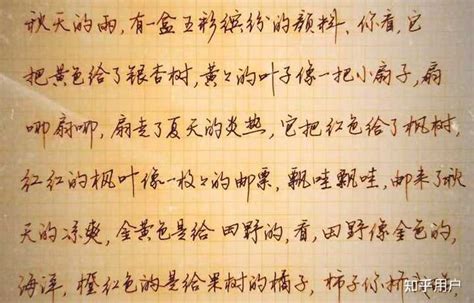 秋天的雨,有一盒五彩缤纷的颜料、你看,它
把黄色给了银杏树,黄々的叶子像一把小扇子,扇
呀扇呀,扇走了夏天的炎热,它把红色给了枫树,
红红的枫叶像一枚々的邮票,飘哇飘哇,邮来了秋
天的凉爽,金黄色是给田野的,看,田野像金色的,
海洋,橙红色的是给果树的橘子,柿子你挤
知乎用户